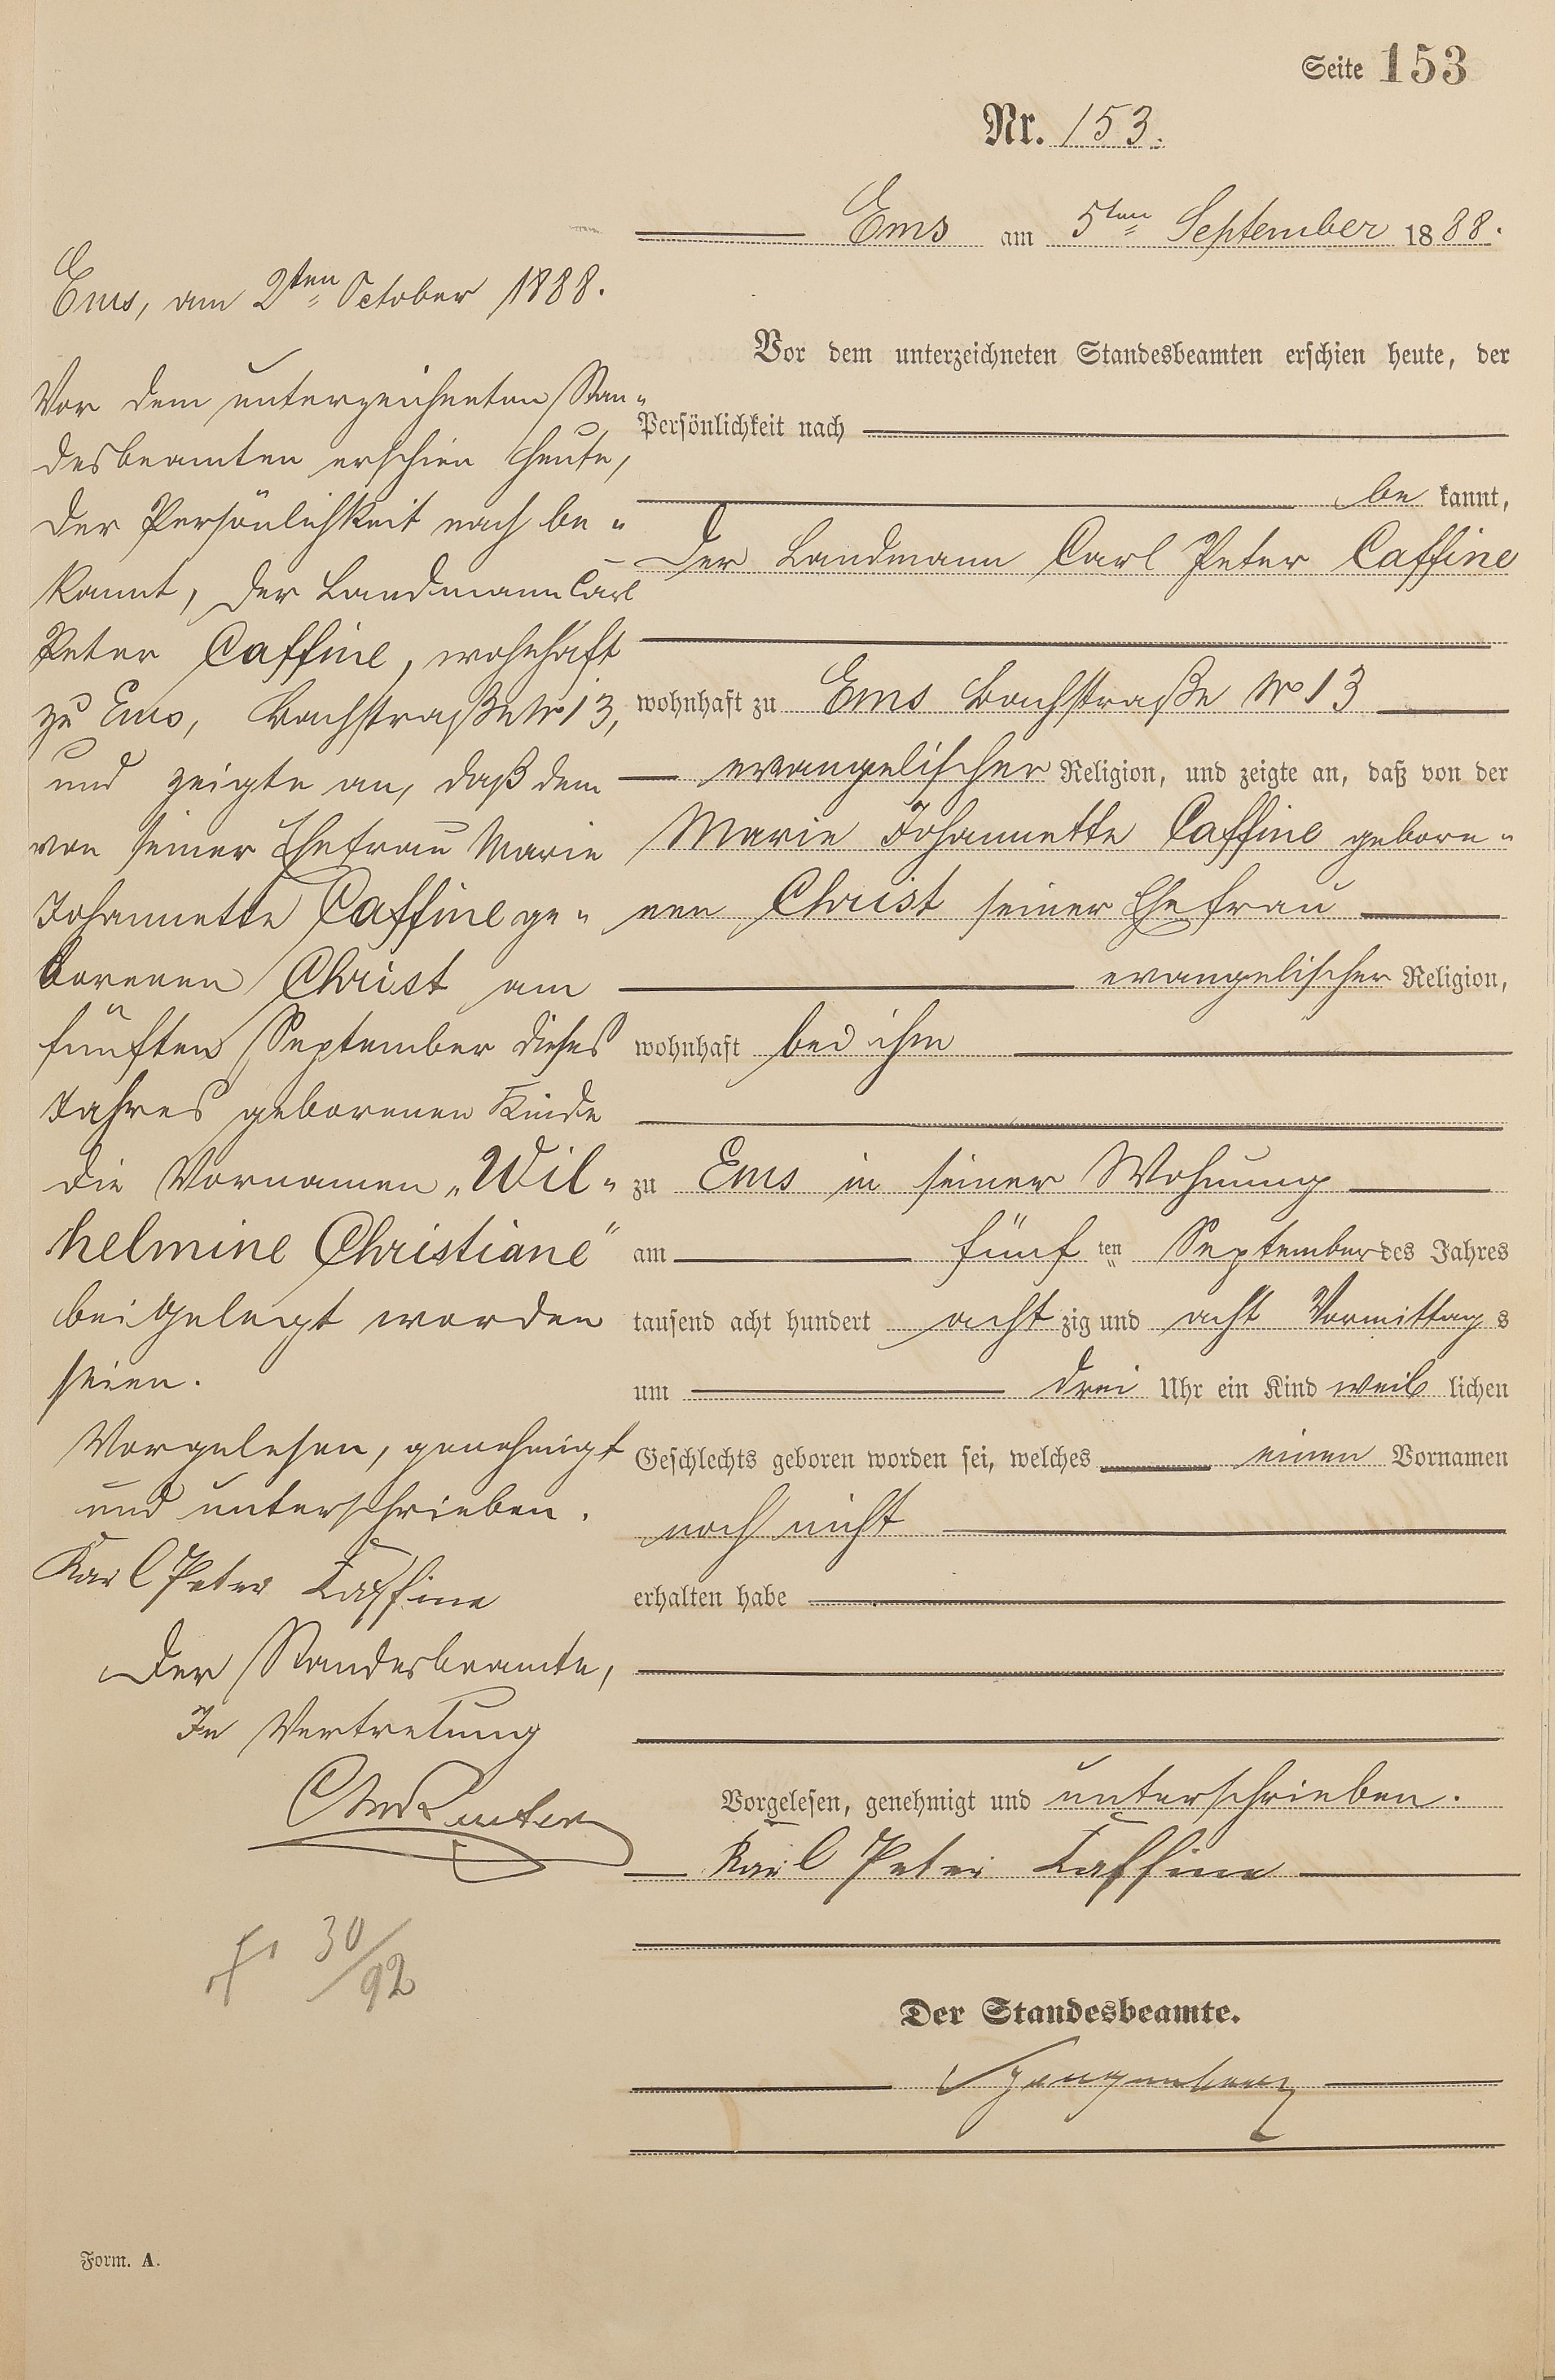 Seite 153
Nr. 153.
Ems am 5ten September 1888.
Vor dem unterzeichneten Standesbeamten erschien heute, der
Persönlichkeit nach
be kannt,
der Landmann Carl Peter Caffine
wohnhaft zu Ems Bachstraße No 13
evangelischer Religion, und zeigte an, daß von der
Marie Johannette Caffine gebore-
nen Christ seiner Ehefrau
evangelischer Religion,
wohnhaft bei ihm
zu Ems in seiner Wohnung
am fünf ten September des Jahres
tausend acht hundert acht zig und acht Vormittag s
um drei Uhr ein Kind weib lichen
Geschlechts geboren worden sei, welches einen Vornamen
noch nicht
erhalten habe
Vorgelesen, genehmigt und unterschrieben.
Karl Peter Caffine
Der Standesbeamte.
Ems, am 2ten October 1888.
Vor dem unterzeichneten Stan-
desbeamten erschien heute,
der Persönlichkeit nach be-
kannt, der Landmann Carl
Peter Caffine, wohnhaft
zu Ems, Bachstraße No 13,
und zeigte an, daß dem
von seiner Ehefrau Marie
Johannette Caffine ge-
borenen Christ am
fünften September dieses
Jahres geborenen Kinde
die Vornamen „Wil-
helmine Christiane"
beigelegt worden
seien.
Vorgelesen, genehmigt
und unterschrieben.
Karl Peter Caffine
Der Standesbeamte,
In Vertretung
30/92
Form. A.